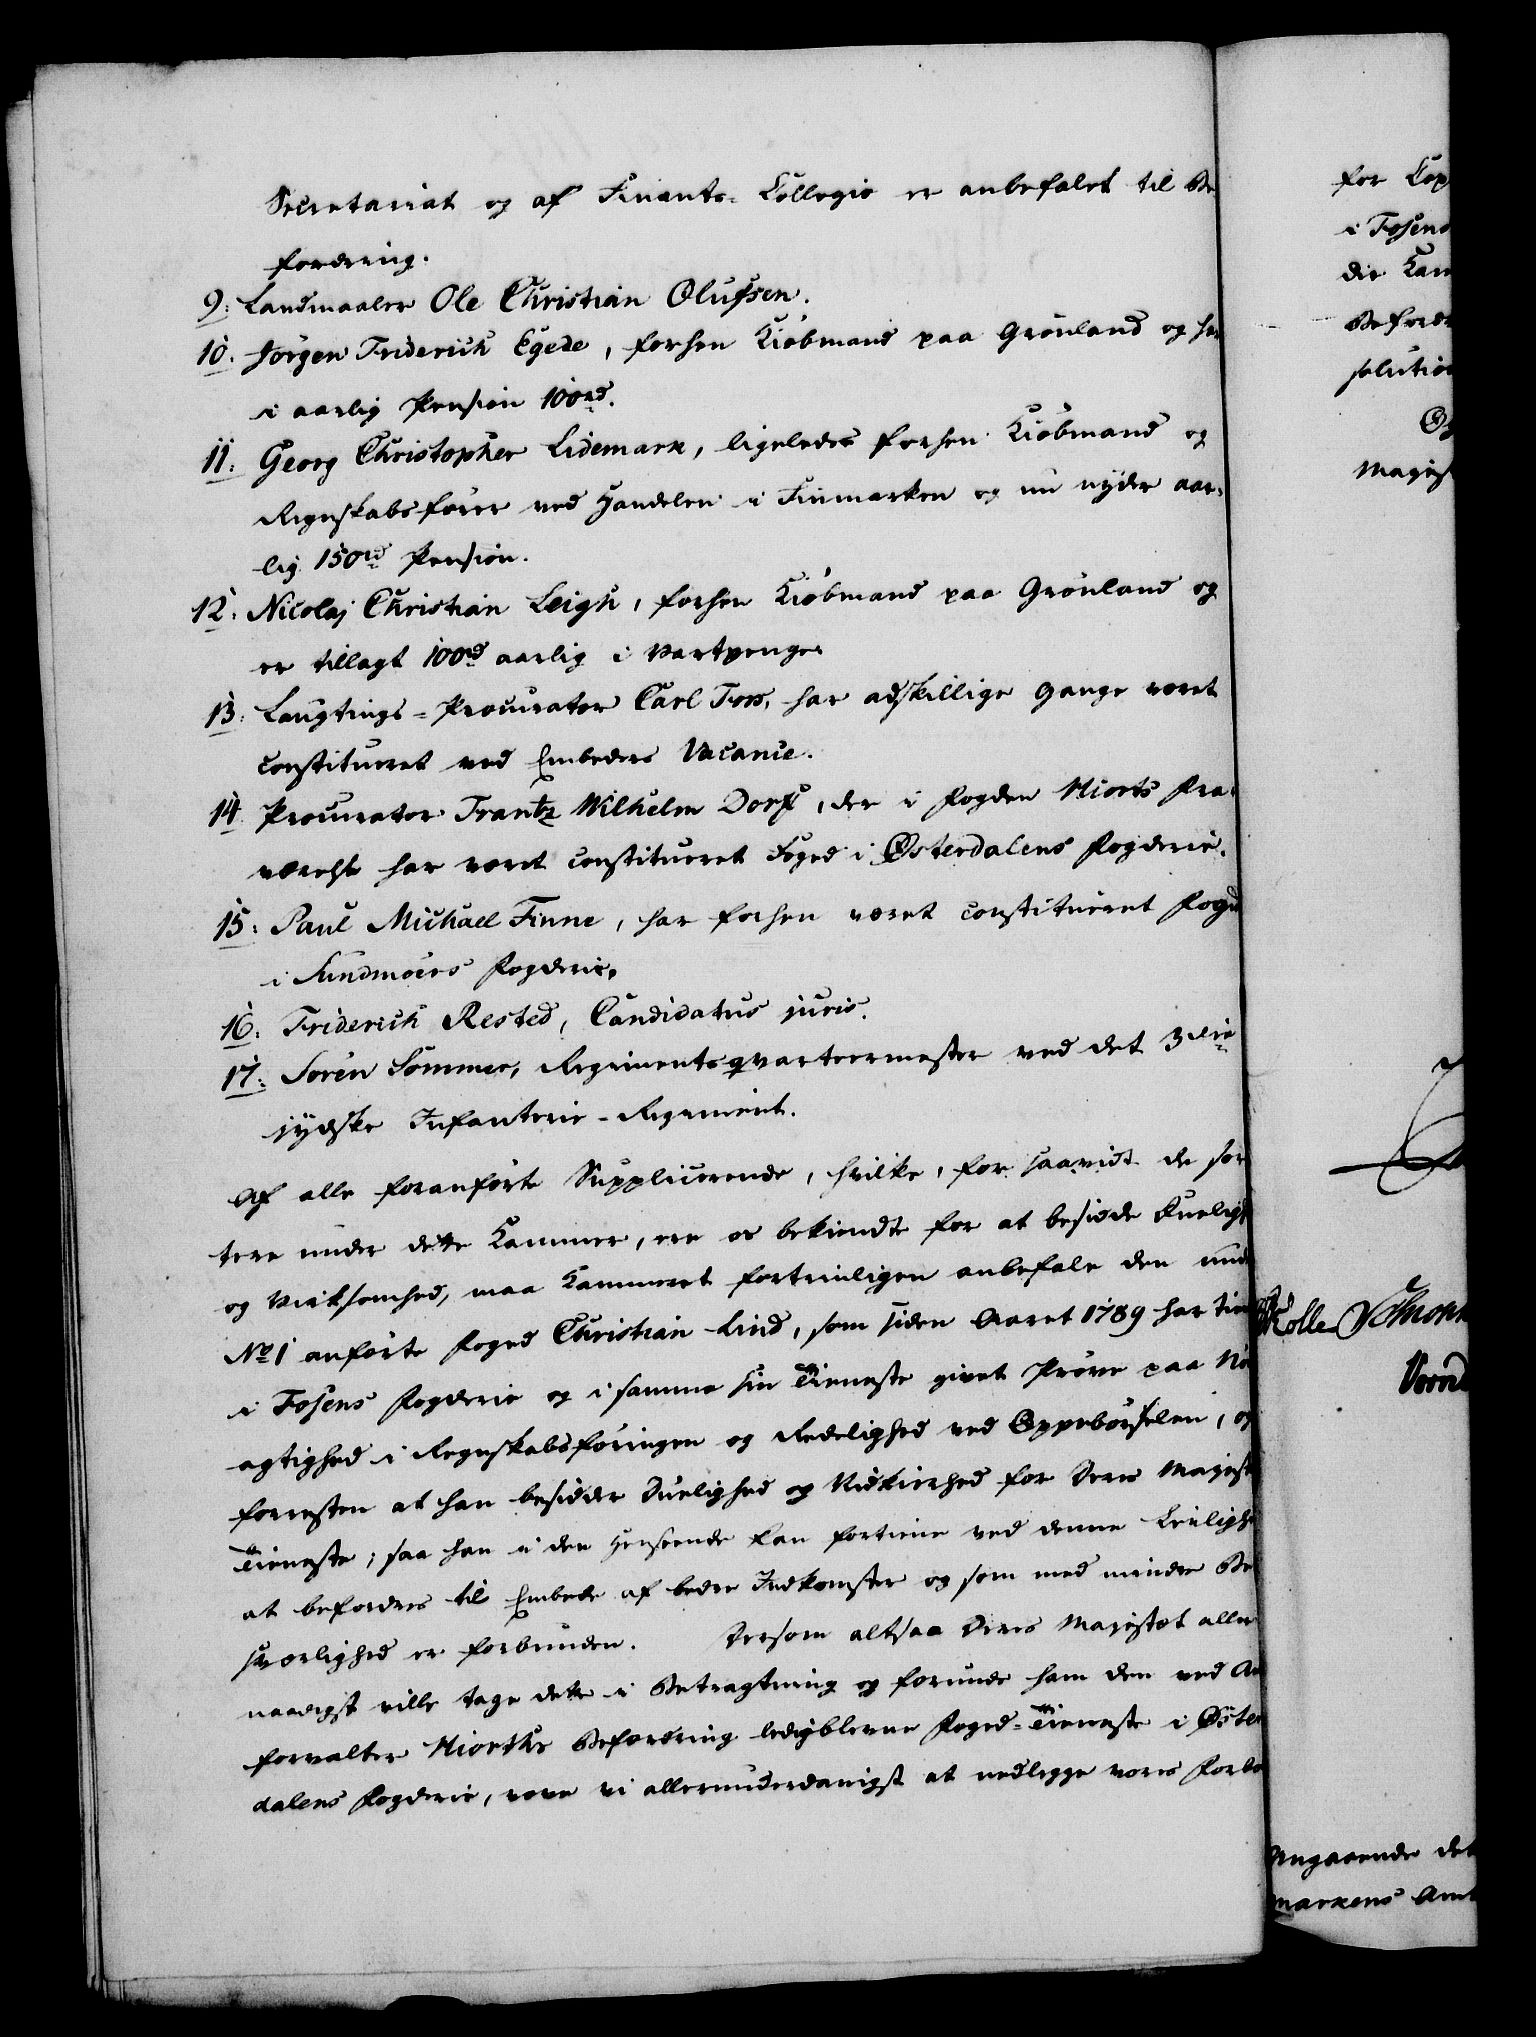 Secretariat og af Finants-Collegio er anbefalet til Be
fordring.
9. Landmaaler Ole Christian Olufsen.
10. Jörgen Friderich Egede, forhen Kiöbmand paa Grönland og har
i aarlig Pension 100rd.
11. Georg Christopher Lidemark, ligeledes forhen Kiöbmand og
Regnskabsfører ved Handelen i Finmarken og nu nyder aar-
lig 150rd Pension.
12. Nicolaj Christian Leigh, forhen Kiöbmand paa Grönland og
er tillagt 100rd aarlig i Vartpenge
13. Laugtings-Procurator Carl Foss, har adskillige Gange været
constitueret ved Embeders Vacance.
14 Procurator Frantz Wilhelm Dorph, der i Fogden Hiorts Fra-
værelse har været constitueret Foged i Østerdalens Fogderie.
15. Paul Michael Finne, har forhen været constitueret Foged
i Sundmöers Fogderie,
16. Friderich Rested, Candidatus juris.
17. Sören Sommer, Regimentsqvarteermester ved det 3die
jydske Infanterie-Regiment.
Af alle foranförte Supplicerende, hvilke, for saavidt de sor
tere under dette Kammer, ere os bekiendte for at besidde Duelighed
og Virksomhed, maa Kammeret fortrinligen anbefale den under
No 1 anförte Foged Christian Lind, som siden Aaret 1789 har tient
i Fosens Fogderie og i samme sin Tieneste givet Pröve paa Nöi
agtighed i Regnskabsföringen og Redelighed ved Oppebörselen, og
forresten at han besidder Duelighed og Nidkierhed for Deres Majestæts
Tieneste; saa han i den Henseende kan fortiene ved denne Leilighed
at befordres til Embede af bedre Indkomster og som med mindre Be
sværlighed er forbunden. Dersom altsaa Deres Majestæt aller
naadigst ville tage dette i Betragtning og forunde ham den ved
forvalter Hiorths Befordring ledigblevne Foged-Tieneste i Øster
dalens Fogderie, vove vi allerunderdanigst at nedlegge vores Forbe
for
i Fosens
die Kam
Befordr
solution
Majest
Rolle
Angaaende det
markens Amt